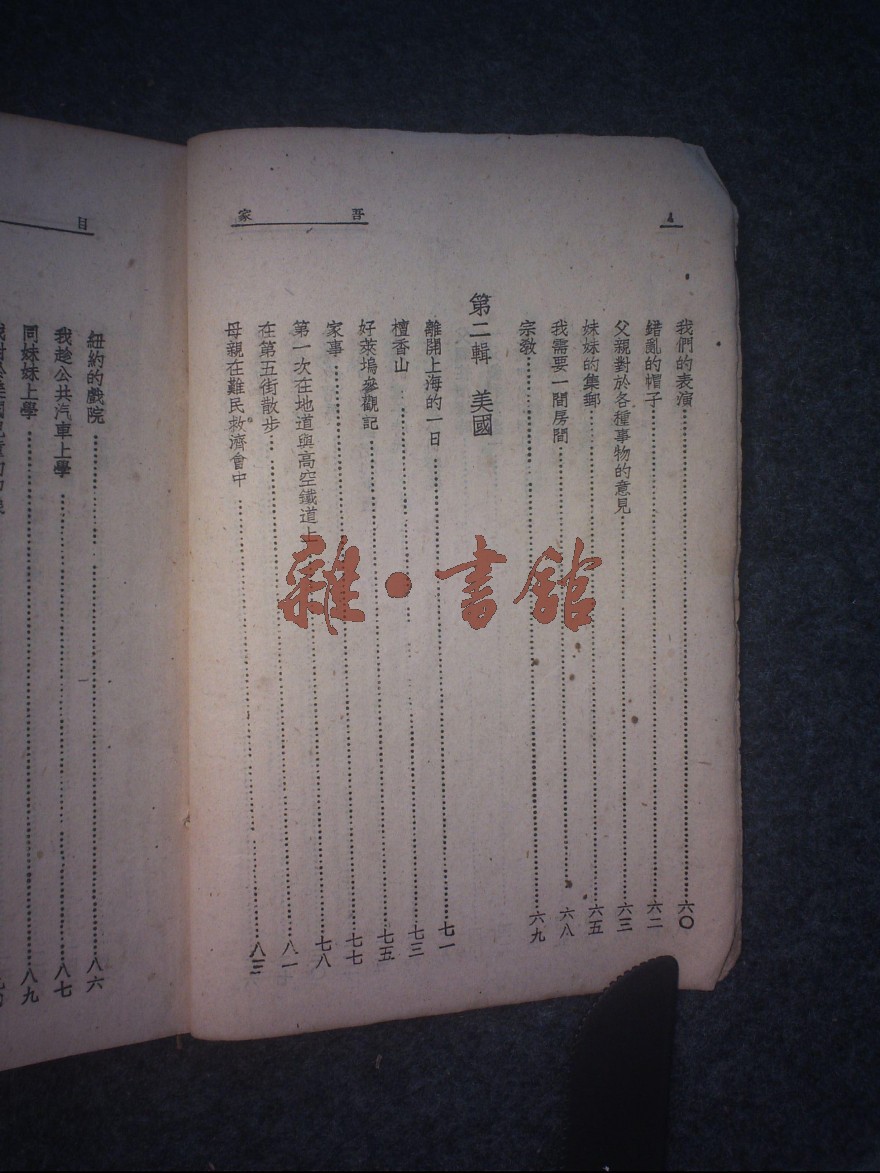 4
吾家
我們的表演……六〇
錯亂的帽子……六二
父親對於各種事物的意見……六三
妹妹的集郵……六五
我需要一間房間……六八
宗教……六九
第二輯 美國
離開上海的一日……七一
檀香山……七三
好萊塢參觀記……七五
家事……七七
第一次在地道與高空鐵道上……七八
在第五街散步……八一
母親在難民救濟會中……八三
目
紐約的戲院……八六
我趁公共汽車上學……八七
同妹妹上學……八九
雜·書館